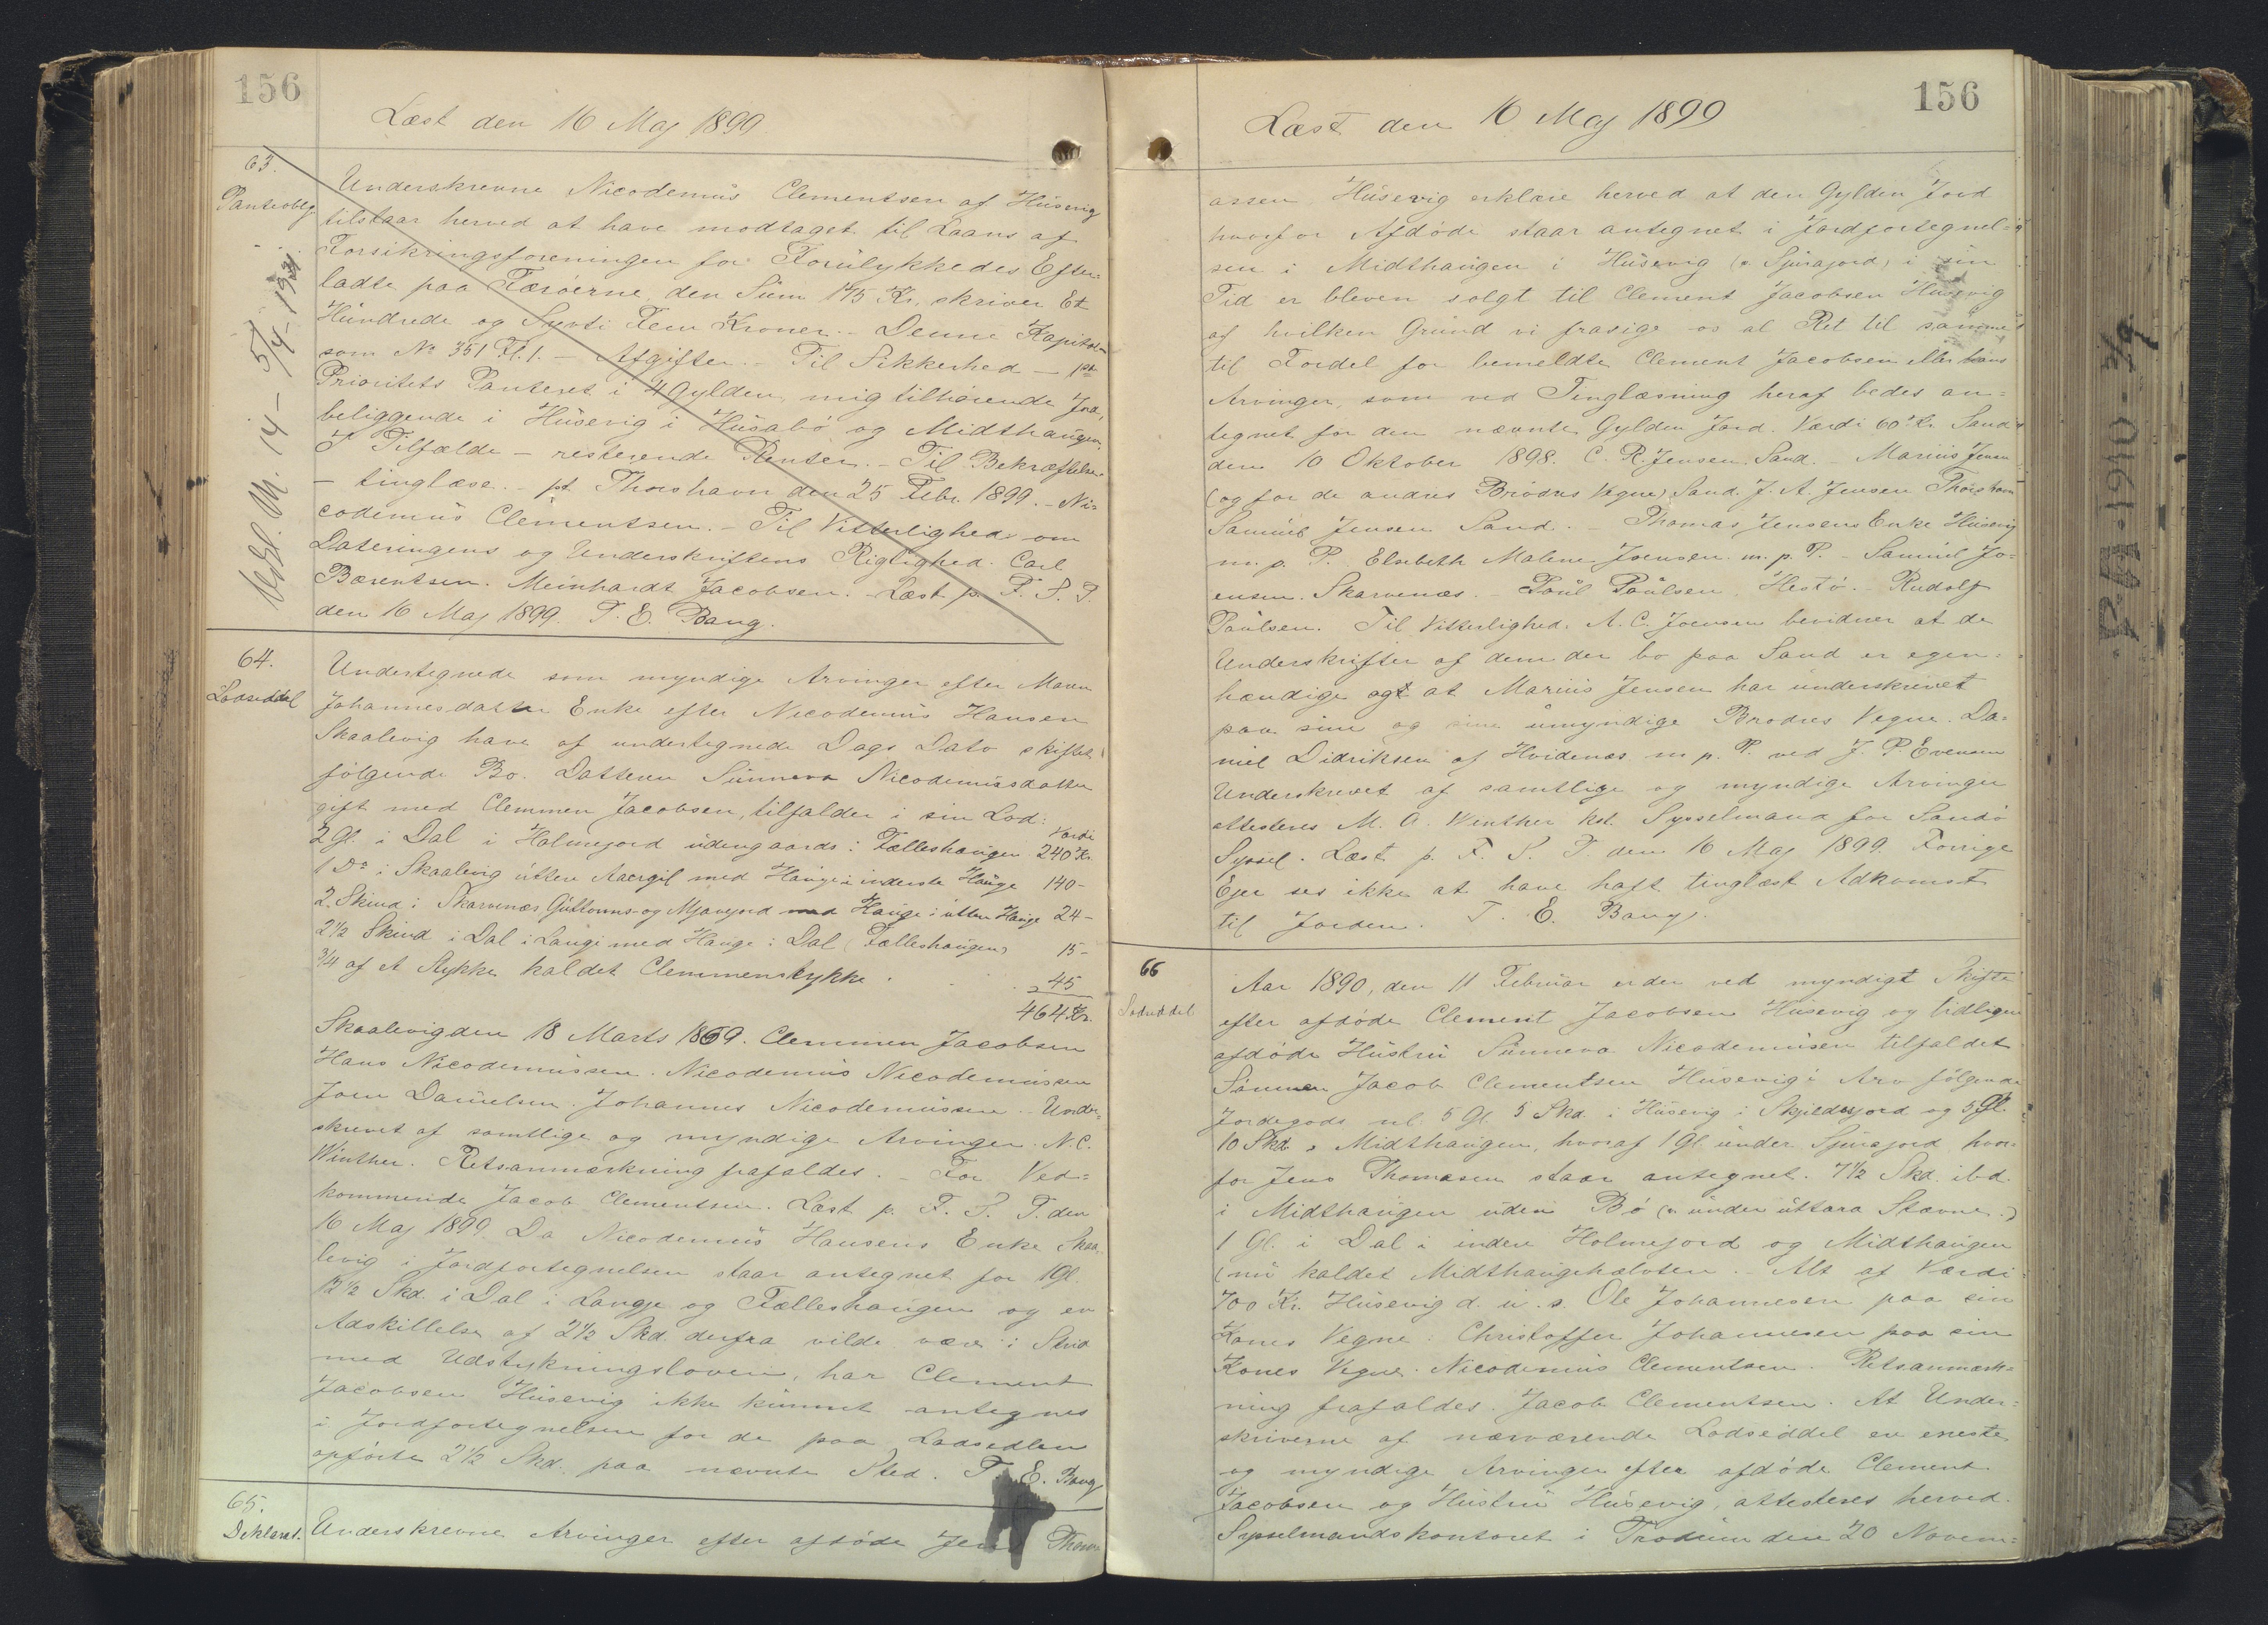 156
Læst den 16 Maj 1899
63.
Panteoblg
Underskrevne Nicodemus Clementsen af Húsevig
tilstaar herved at have modtaget til Laans af
Forsikringsforeningen for Forulykkedes Efter=
ladte paa Færöerne den Súm 175 Kr. skriver Et
Hundrede og Syvti Fem Kroner. - Denne Kapital -
som No 351 Fl. 1. - Afgifter. - Til Sikkerhed - 1ste
Prioritets Panteret i 4 Gylden, mig tilhörende Jord,
beliggende i Húsevig i Húsabö og Midthaugen
I Tilfælde - resterende Renter. - Til Bekræftelse -
- tinglæse. - pt Thorshavn den 25 Febr. 1899. - Ni=
codemus Clementsen. - Til Vitterlighed om
Dateringens og Underskriftens Rigtighed. Carl
Bærentsen. Meinhardt Jacobsen. - Læst p. F. S. T.
den 16 Maj 1899. T. E. Bang.
64.
Lodseddel
Undertegnede som myndige Arvinger efter Maren
Johannesdatter Enke efter Nicodemus Hansen
Skaalevig have af undertegnede Dags Dato skiftet
fölgende Bo. Datteren Sunneva Nicodemusdatter
gift med Clemmen Jacobsen, tilfalder i sin Lod: Værdi
2 Gl. i Dal i Holmejord údengaards i Fælleshaugen 240 Kr.
1 Do i Skaalevig úttere Aaergil med Hauge i inderste Hauge 140 -
2. Skind i Skarvenæs Guttorms- og Mjavejord med Hauge i utter Hauge 24 -
2 1/2 Skind i Dal i Laugi med Hauge i Dal (Fælleshaugen) 15 -
3/4 af et Stykke kaldet Clemmenstykke . . . 45
464 Kr.
Skaalevig den 18 Marts 1869. Clemmen Jacobsen
Hans Nicodemussen. Nicodemus Nicodemussen
Joen Danielsen. Johannes Nicodemussen. - Under=
skrevet af samtlige og myndige Arvinger. N. C.
Winther. Retsanmærkning frafaldes. - For Ved=
kommende Jacob Clementsen. Læst p. F. S. T. den
16 Maj 1899. Da Nicodemus Hansens Enke Skaa=
levig i Jordfortegnelsen staar antegnet for 1 Gl.
12 1/2 Skd. i Dal i Laugje og Fælleshaugen og en
Adskillelse af 2 1/2 Skd. derfra vilde være i Strid
med Udstykningsloven, har Clement
Jacobsen Húsevig ikke kunnet antegnes
i Jordfortegnelsen for de paa Lodsedlen
opförte 2 1/2 Skd. paa nævnte Sted. T. E. Bang
65.
Deklarat.
Underskrevne Arvinger efter afdöde Jens Thom
156
Læst den 16 Maj 1899
assen Húsevig erklære herved at den Gylden Jord
hvorfor Afdöde staar antegnet i Jordfortegnel=
sen i Midthaugen i Húsevig (o Sjúrajord) i sin
Tid er bleven solgt til Clement Jacobsen Húsevig
af hvilken Grund vi frasige os al Ret til samme
til Fordel for bemeldte Clement Jacobsen eller hans
Arvinger, som ved Tinglæsning heraf bedes an=
tegnet for den nævnte Gylden Jord. Værdi 60 Kr. Sand
den 10 Oktober 1898. C. R. Jensen. Sand. - Marius Jensen
(og for de andres Brödres Vegne) Sand. J. A. Jensen Thorshavn
Samúel Jensen Sand. . Thomas Jensens Enke Húsevig
m. p. P. Elsebeth Malene Joensen. m. p. P. - Samúel Jo=
ensen. Skarvenæs. - Poul Poulsen. Hestö. - Rudolf
Poulsen. Til Vitterlighed. A. C. Joensen bevidner at de
Underskrifter af dem der bo paa Sand er egen=
hændige ogs at Marius Jensen har underskrevet
paa sine og sine umyndige Brodres Vegne. Da=
niel Didriksen af Hvidenæs m. p. P. ved J. P. Evensen
Underskrevet af samtlige og myndige Arvinger
attesteres M. A. Winther kst. Sysselmand for Sandö
Syssel. Læst p. F. S. T. den 16 Maj 1899. Forrige
Ejer ses ikke at have haft tinglæst Adkomst
til Jorden. T. E. Bang.
66
Lodseddel
Aar 1890, den 11 Februar er der ved myndigt Skifte
efter afdöde Clement Jacobsen Húsevig og tidligere
afdöde Hustru Sunneva Nicodemusen tilfaldet
Sönnen Jacob Clementsen Húsevig i Arv fölgende
Jordegods nl. 5 Gl. 5 Skd. i Húsevig i Skjildesjord og 5 Gl.
10 Skd. i Midthaugen, hvoraf 1 Gl. under Sjúrajord hvor=
for Jens Thomasen staar antegnet. 7 1/2 Skd. ibd.
i Midthaugen uden Bö (o. under úttara Stavne.)
1 Gl. i Dal i indere Holmejord og Midthaugen
(nú kaldet Midthaugehalvten. Alt af Værdi
700 Kr. Húsevig d. u. s. Ole Johannesen paa sin
Kones Vegne. Christoffer Johannesen paa sin
Kones Vegne. Nicodemus Clementsen. Retsanmærk=
ning frafaldes. Jacob Clementsen. At Under=
skriverne af nærværende Lodseddel er eneste
og myndige Arvinger efter afdöde Clement
Jacobsen og Hustru Húsevig, attesteres herved.
Sysselmandskontoret i Trodum den 20 Novem=